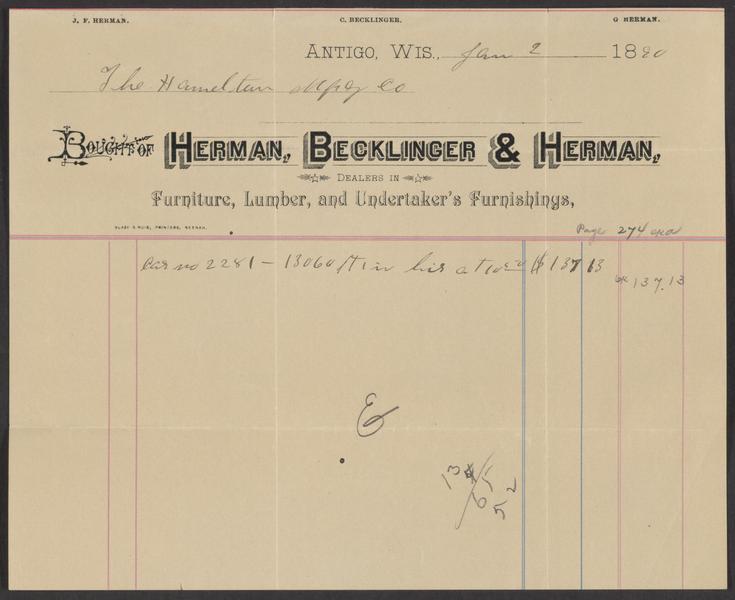 J. F. HERMAN. C. BECKLINGER. G HERMAN.
ANTIGO, WIS., Jan 2 1890
The Hamelton Mfg Co
BOUGHT OF HERMAN, BECKLINGER & HERMAN,
DEALERS IN
Furniture, Lumber, and Undertaker's Furnishings,
Page 274
Car no 2281 — 13060 ft in at 10 50 $137 13
137.13